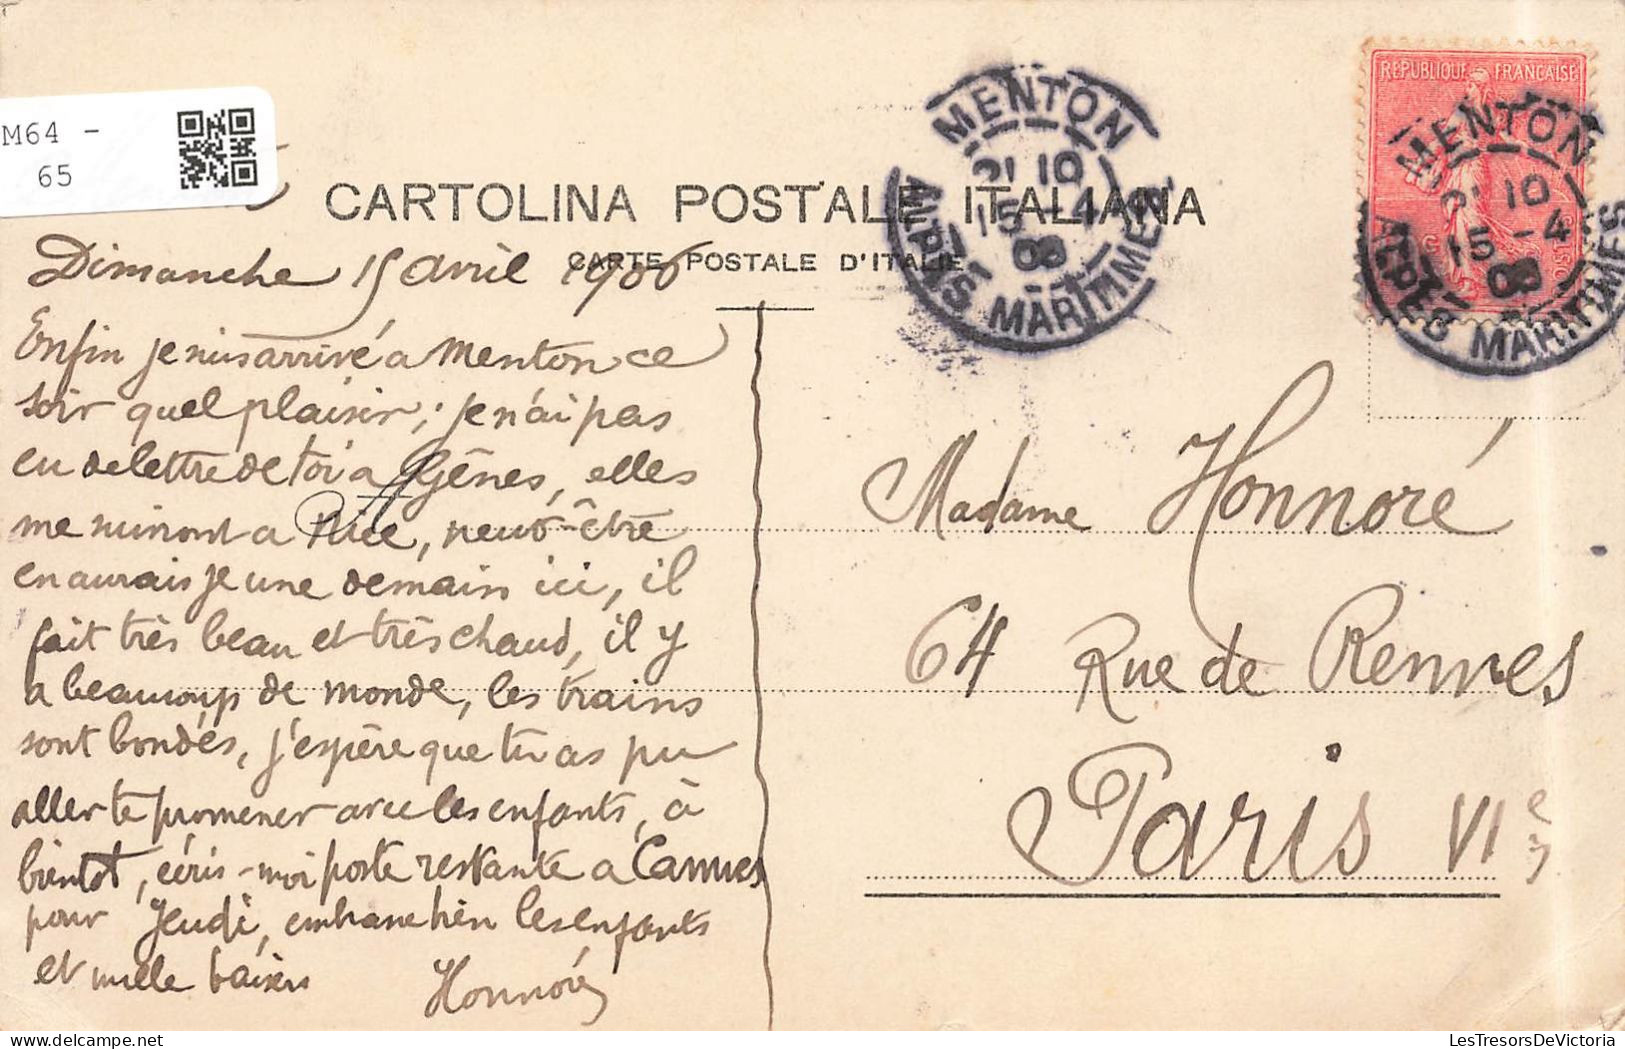 M64 -
65
CARTOLINA POSTALE ITALIANA
CARTE POSTALE D'ITALIE
Dimanche 15 avril 1906
Enfin je suis arrivé a Menton ce
soir quel plaisir, je n'ai pas
eu de lettre de toi a Gênes, elles
me suivront a Nice, peut-être
en aurais je une demain ici, il
fait très beau et très chaud, il y
a beaucoup de monde, les trains
sont bondés, j'espère que tu as pu
aller te promener avec les enfants, à
bientot, écris-moi poste restante a Cannes
pour Jeudi, embrasse bien les enfants
et mille baisers
Honnoré
MENTON
21 10
15 - 4
06
ALPES MARITIMES
REPUBLIQUE FRANÇAISE
MENTON
21 10
15 - 4
06
ALPES MARITIMES
Madame Honnoré
64 Rue de Rennes
Paris VIe
LesTresorsDeVictoria